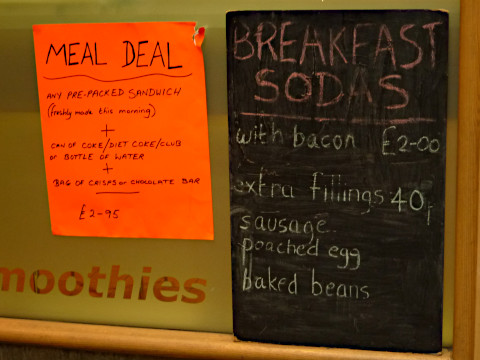 MEAL DEAL
ANY PRE-PACKED SANDWICH
(freshly made this morning)
+
CAN OF COKE/DIET COKE/CLUB
or BOTTLE OF WATER
+
BAG OF CRISPS or CHOCOLATE BAR
£2-95
moothies
BREAKFAST
SODAS
with bacon £2-00
extra fillings 40p
sausage
poached egg
baked beans